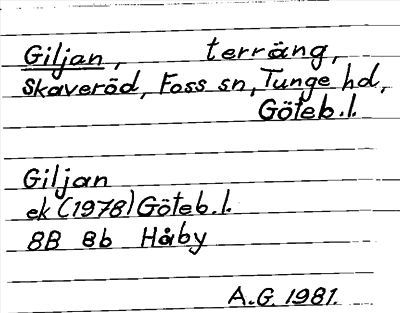 Giljan, terräng,
Skaveröd, Foss sn, Tunge hd,
Göteb.l.
Giljan
ek (1978) Göteb.l.
8B 8b Håby
A.G. 1981.